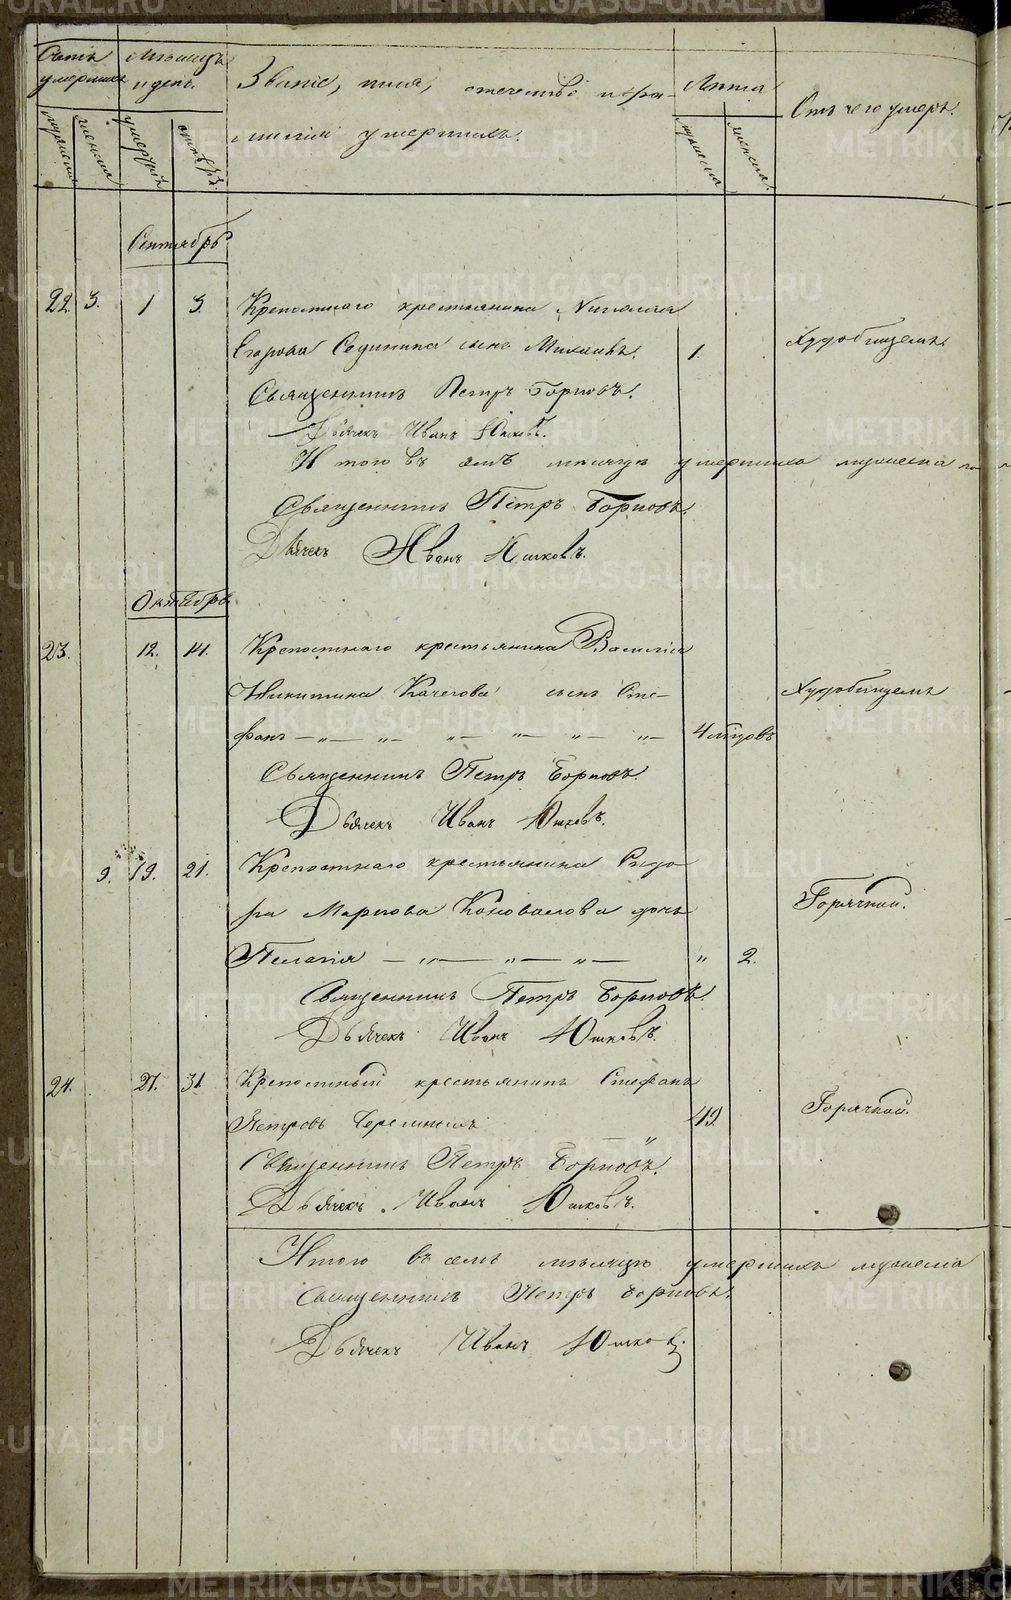 Счетъ умершихъ
Мѣсяцъ и день.
Званіе, имя, отечество и фа-
милія умершихъ.
Лѣта
Отъ чего умеръ.
мужеска
женска
умертвія
погребенія
мужеска
женска.
Сентябрь
22. 3. 1 3. Крепостнаго крестьянина Николая
Егорова сынъ Михаилъ. 1. Худобищемъ
Священникъ Петръ Борисовъ.
Дьячекъ Иванъ Юшковъ.
Итого въ семъ мѣсяцѣ умершихъ мужеска
Священникъ Петръ Борисовъ.
Дьячекъ Иванъ Юшковъ.
Октябрь
23. 12. 14. Крепостнаго крестьянина Василія
Никитина Качегова сынъ Сте- Худобищемъ
фанъ — „ — „ — „ — „ — „ — „ — 4 мѣсяцовъ
Священникъ Петръ Борисовъ.
Дьячекъ Иванъ Юшковъ.
9. 19. 21. Крепостнаго крестьянина Сидо-
ра Маркова Коновалова дочь Горячкой.
Пелагія — „ — „ — „ — „ 2.
Священникъ Петръ Борисовъ.
Дьячекъ Иванъ Юшковъ.
24. 27. 31. Крепостный крестьянинъ Стефанъ
Петровъ 49. Горячкой.
Священникъ Петръ Борисовъ.
Дьячекъ Иванъ Юшковъ.
Итого въ семъ мѣсяцѣ умершихъ мужеска
Священникъ Петръ Борисовъ.
Дьячекъ Иванъ Юшковъ.
METRIKI.GASO-URAL.RU